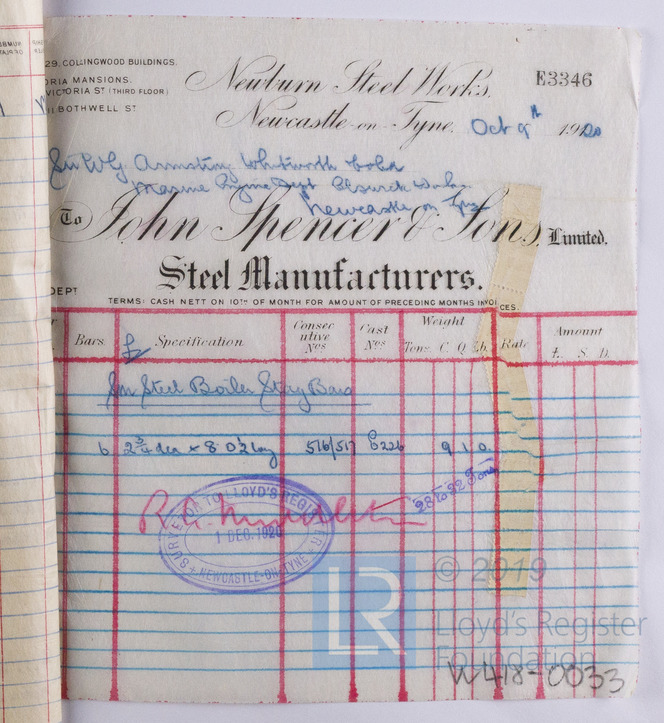 29, COLLINGWOOD BUILDINGS.
ORIA MANSIONS.
VICTORIA ST (THIRD FLOOR)
BOTHWELL ST
Newburn Steel Works.
E3346
Newcastle-on-Tyne. Oct 9th 1920
Sir W G Armstrong Whitworth
Marine Engine Dept Elswick Works
Newcastle on Tyne
To John Spencer & Sons, Limited.
Steel Manufacturers.
DEPT
TERMS: CASH NETT ON 10TH OF MONTH FOR AMOUNT OF PRECEDING MONTHS INVOICES.
Bars. Specification Consecutive Nos Cast Nos Weight Tons. C. Q. lb. Rate Amount £. S. D.
Steel Boiler Stay Bars
6 2 3/4 dia × 8. 0 1/2 long 516/517 6226 9 1 0
28 to 32 Tons
SURVEYOR TO LLOYD'S REGISTER
1 DEC. 1920
NEWCASTLE-ON-TYNE
LR
© 2019
Lloyd's Register
Foundation
W418-0033